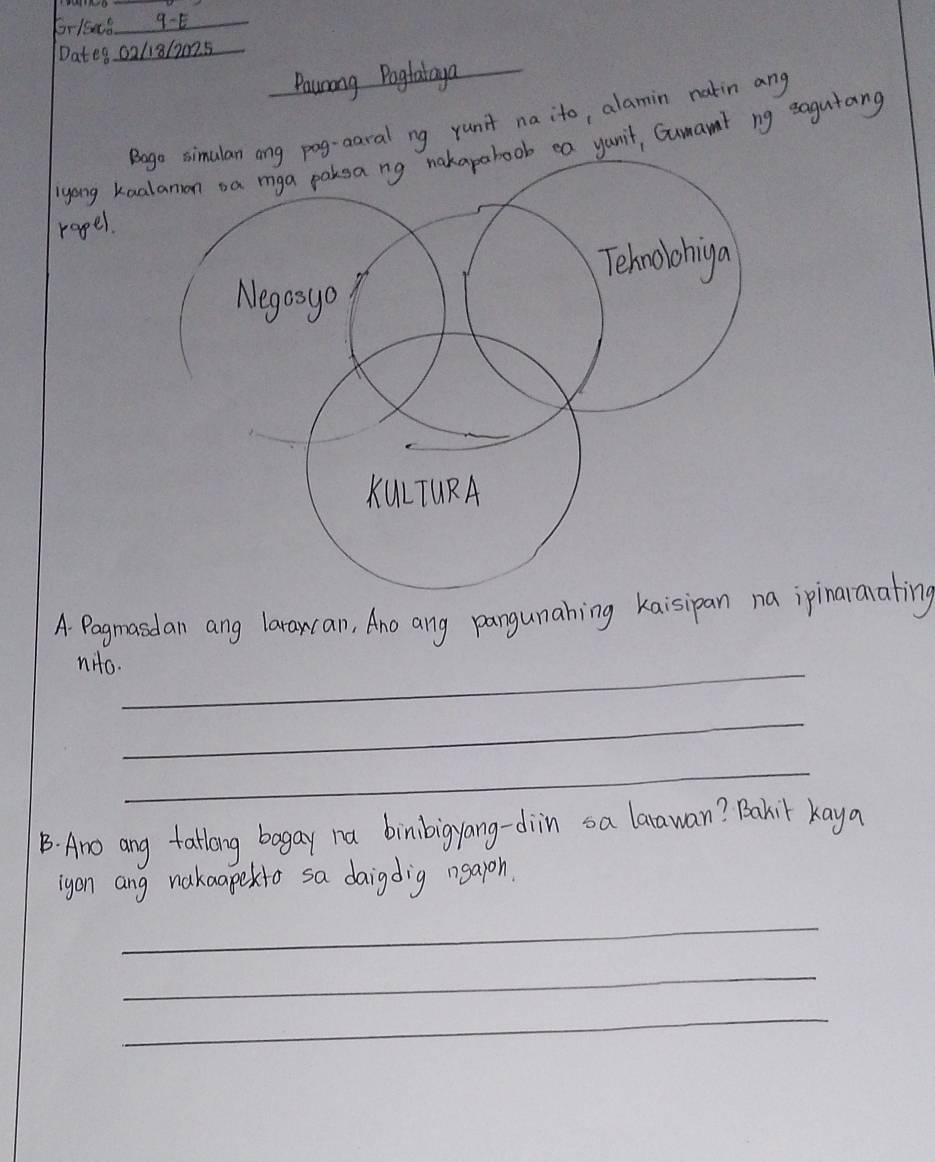 Gr/Sec: 9-E
Date: 02/18/2025
Paunang Pagtataya
Bago simulan ang pag-aaral ng yunit na ito, alamin natin ang
iyong kaalaman sa mga paksa ng nakapaloob sa yunit, Gumamit ng sagutang
papel.
Negosyo
Teknolohiya
KULTURA
A. Pagmasdan ang larawan, Ano ang pangunahing kaisipan na ipinararating
nito.
B. Ano ang tatlong bagay na binibigyang-diin sa larawan? Bakit kaya
iyon ang nakaapekto sa daigdig ngayon.